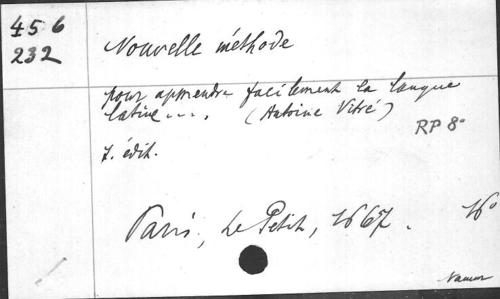 456
232
Nouvelle méthode
pour apprendre facilement la langue
latine.... (Antoine Vitré)
RP 8°
7. édit.
Paris, Le Petit, 1667. 16°
Namur